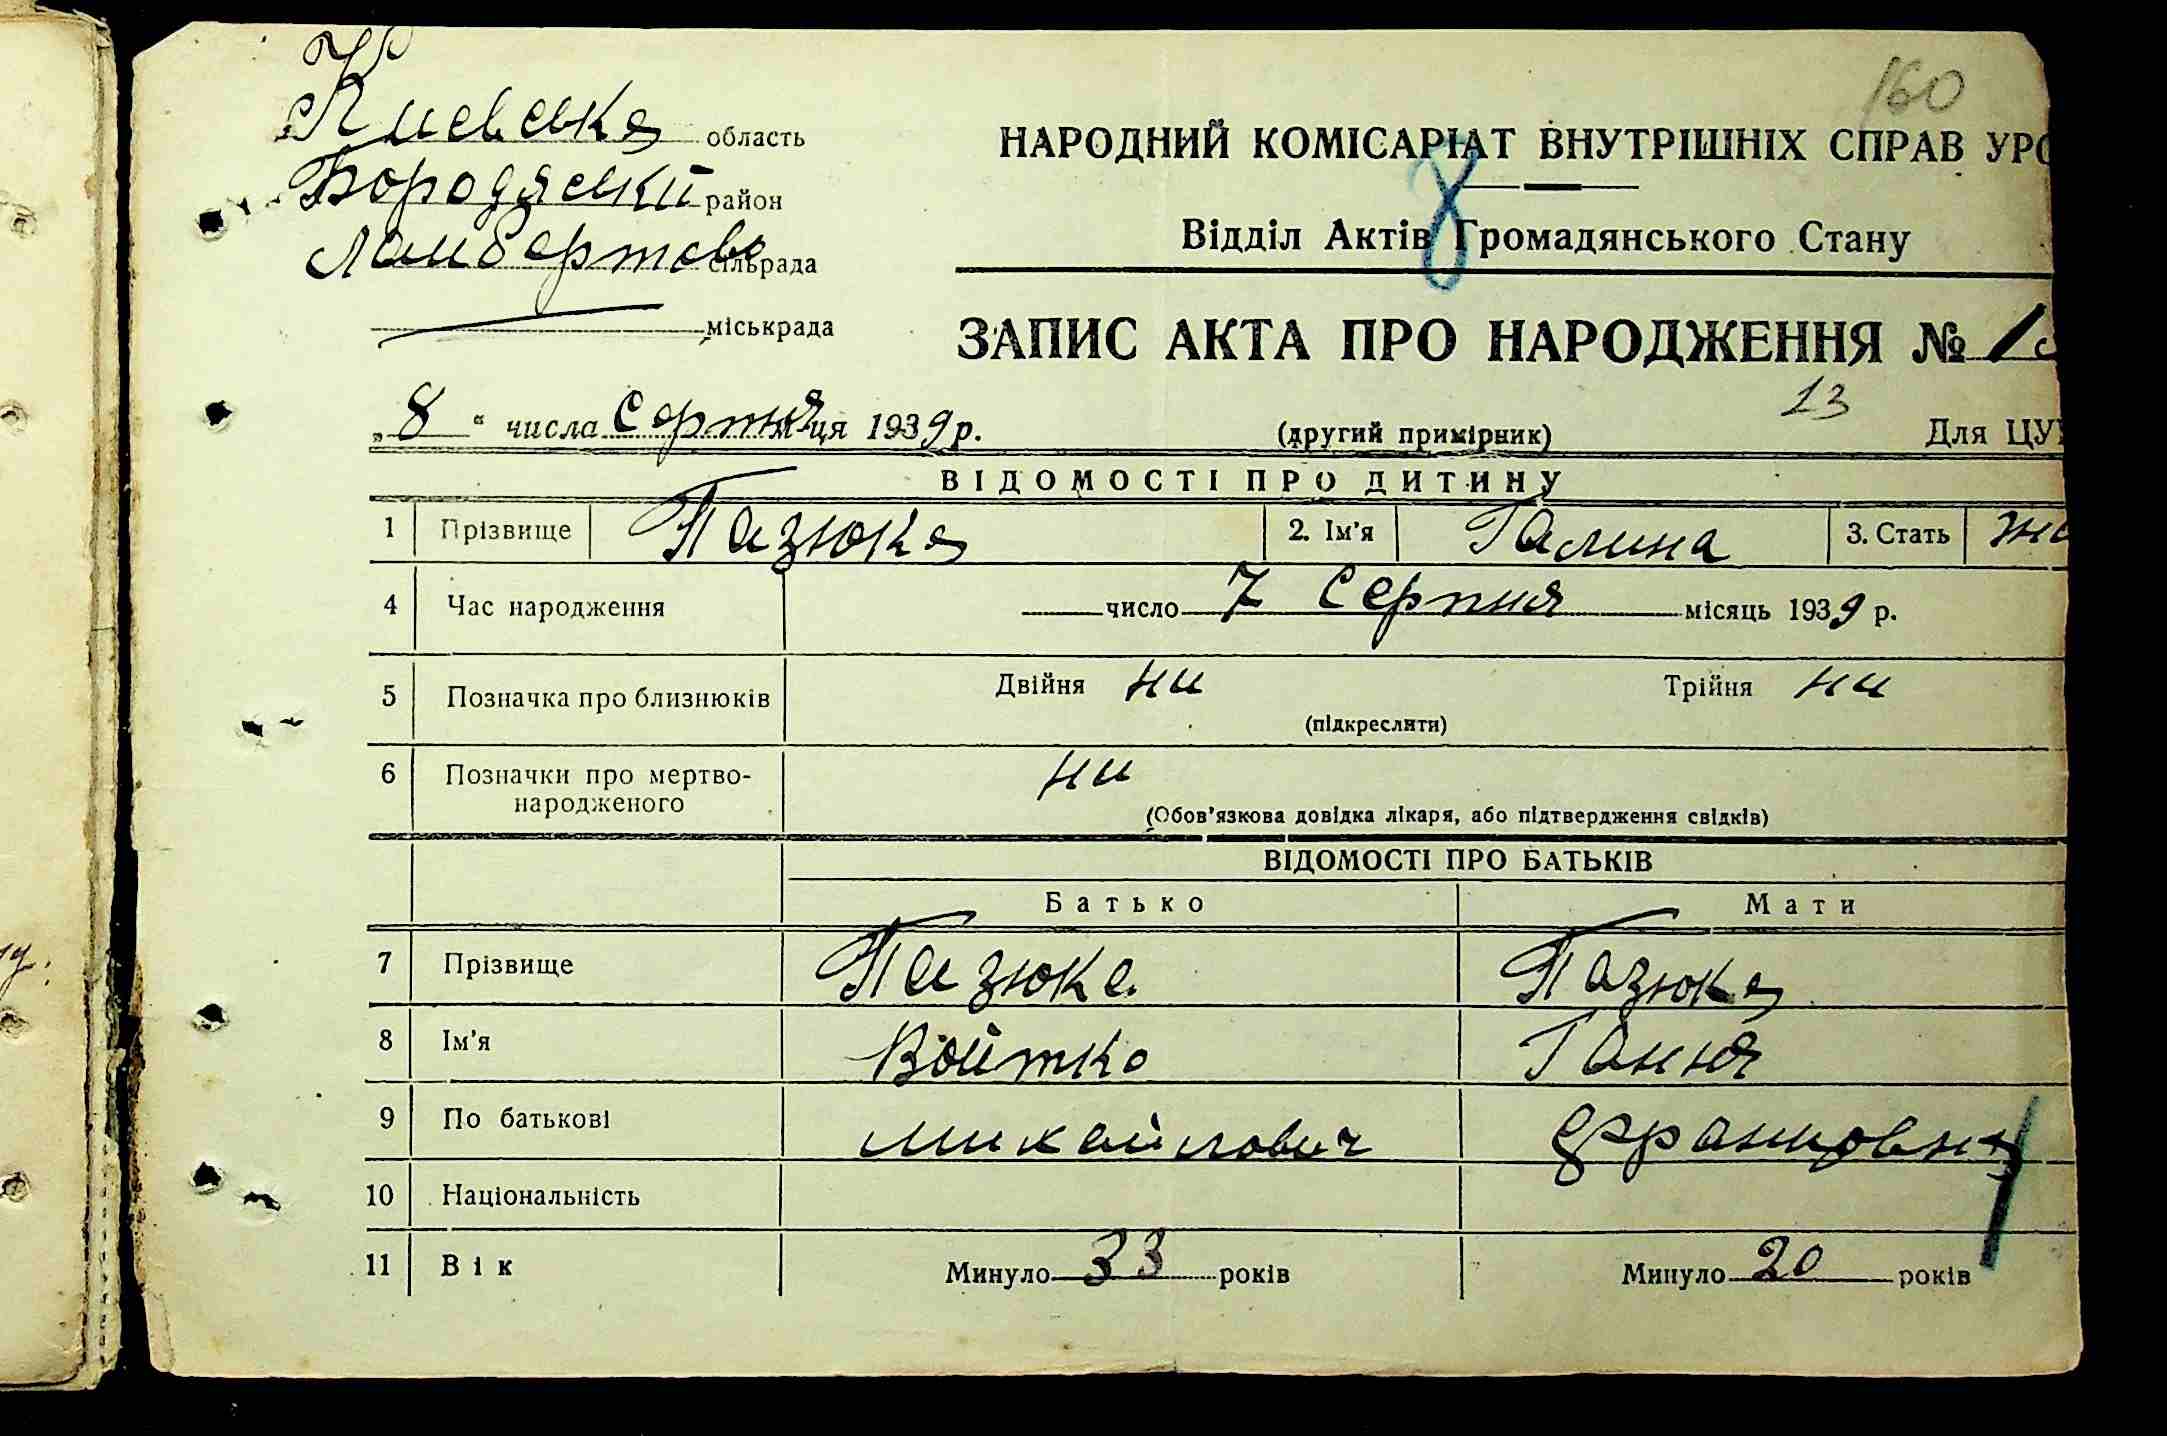 160
Киевська область
Бородяський район
Ламбертова сільрада
міськрада
НАРОДНИЙ КОМІСАРІАТ ВНУТРІШНІХ СПРАВ УРС
8
Відділ Актів Громадянського Стану
ЗАПИС АКТА ПРО НАРОДЖЕННЯ № 13
„8“ числа серпня м-ця 1939 р.
(другий примірник)
13
Для ЦУ
ВІДОМОСТІ ПРО ДИТИНУ
1 Прізвище Пазюка 2. Ім'я Галина 3. Стать
4 Час народження число 7 серпня місяць 1939 р.
5 Позначка про близнюків Двійня ни Трійня ни
(підкреслити)
6 Позначки про мертво-
народженого ни
(Обов'язкова довідка лікаря, або підтвердження свідків)
ВІДОМОСТІ ПРО БАТЬКІВ
Батько Мати
7 Прізвище Пазюка. Пазюка
8 Ім'я Войтко Гання
9 По батькові Михайлович Францовн
10 Національність
11 Вік Минуло 33 років Минуло 20 років